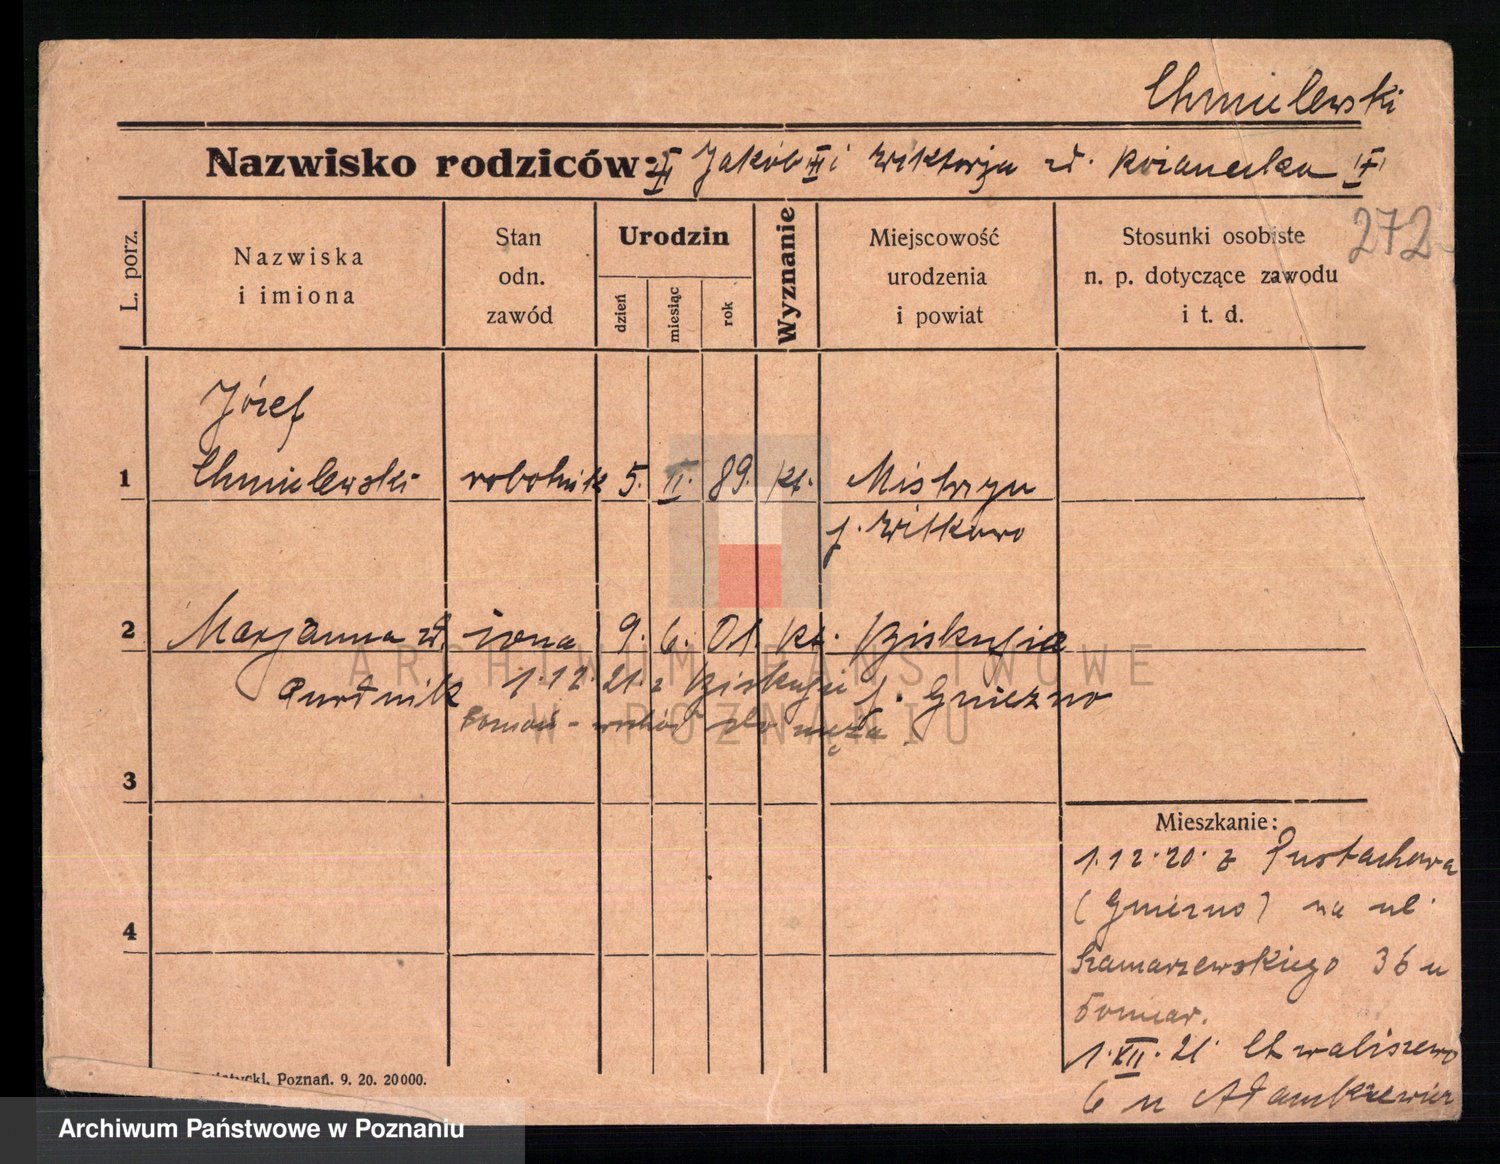 Chmielewski
Nazwisko rodziców: Jakób i Wiktorja
272
L. porz.
Nazwiska
i imiona
Stan
odn.
zawód
Urodzin
dzień
miesiąc
rok
Wyznanie
Miejscowość
urodzenia
i powiat
Stosunki osobiste
n. p. dotyczące zawodu
i t. d.
Józef
1 Chmielewski robotnik 5. II. 89. kt. Mistrzyn
p. Witkowo
2 Marjanna żona 9. 6. 01. kt. Piskupie
1.12.21. z p. Gniezno
męża
ARCHIWUM PAŃSTWOWE
W POZNANIU
3
Mieszkanie:
1.12.20. z Pustachowa
(Gniezno) na ul.
4
Szamarzewskiego 36 u
1.XII.21. Chwaliszewo
6 u Adamkiewicz
Poznań. 9. 20. 20000.
Archiwum Państwowe w Poznaniu